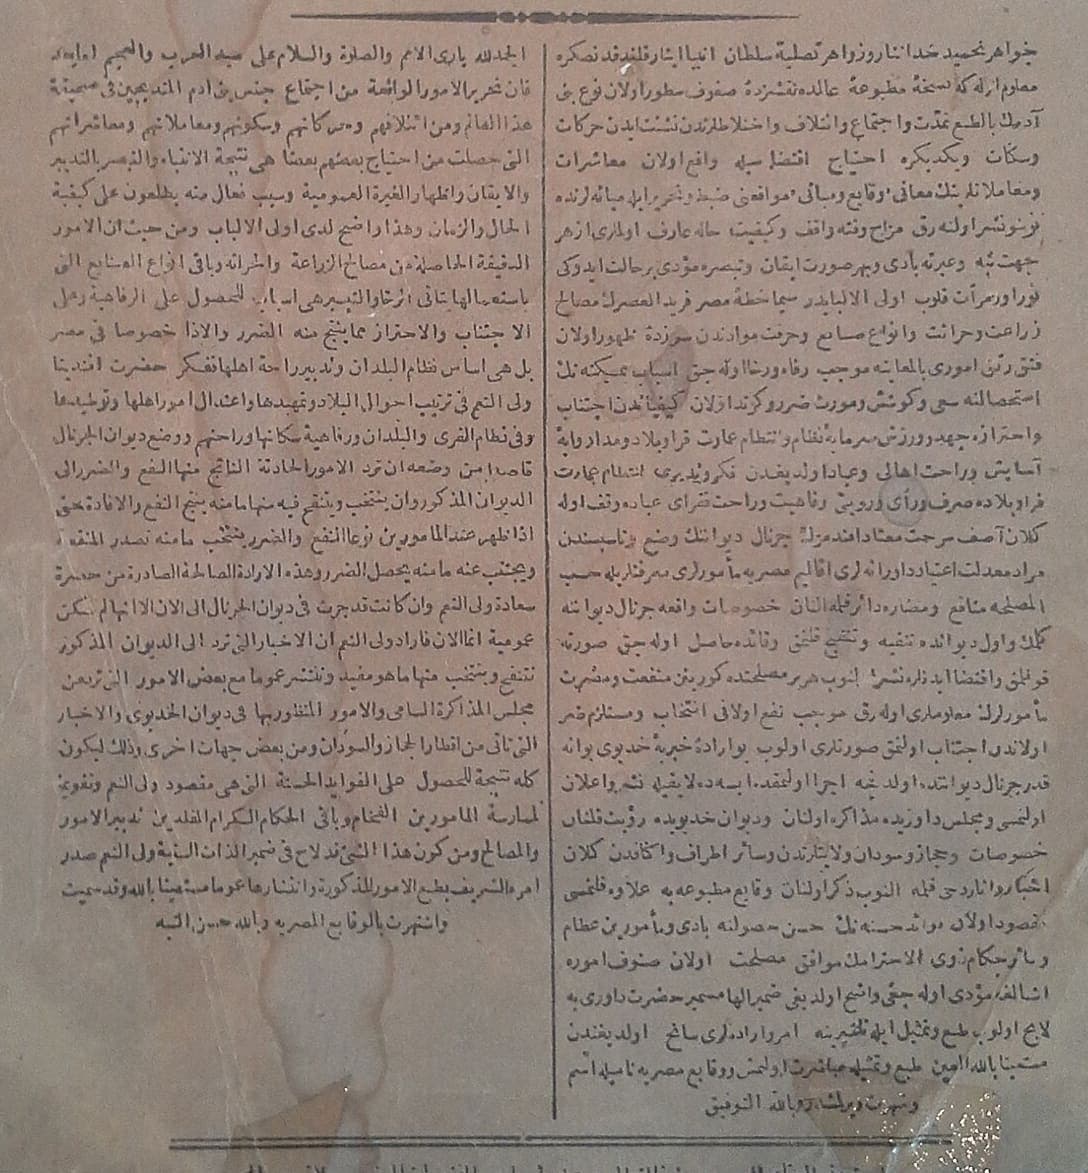 جواهر تحميد خدا نثار وزواهر تصليهٔ سلطان انبيا ايثار قلندقدنصكره
معلوم اوله كه نسخهٔ مطبوعهٔ عالمده نقشزدهٔ صفوف سطور اولان نوع بنى
آدمك بالطبع تمدّن واجتماع وائتلاف واختلاطلرندن نشئت ايدن حركات
وسكنات ويكديكره احتياج اقتضاسيله واقع اولان معاشرات
ومعاملاتلرينك معانى وقايع ومبانى مواقعنى ضبط وتحرير ايله ميانه لرنده
نشر اولنه رق مزاج وقته واقف وكيفيت حاله عارف اولملرى ازهر
جهت تنبه وعبرته بادى وبهر صورت ايقان وتبصره مؤدى برحالت ايدوكى
قلوب اولى الالبابدر سيما خطهٔ مصر فريد العصرك مصالح
زراعت وحراثت وانواع صنايع وحرفت موادندن سرزدهٔ ظهور اولان
فتق رتق امورى بالمعاينه موجب رفاه ورخا اوله جق اسباب ممكنه نك
استحصالنه سعى وكوشش ومورث ضرر وكزند اولان كيفياتدن اجتناب
واحترازه جهد وورزش سرمايهٔ نظام وانتظام عمارت قرا وبلاد ومدار وايهٔ
آسايش وراحت اهالى وعباد اولديغندن فكر وتدبيرى انتظام عمارت
قرا وبلاده صرف ورأى ورويتى رفاهيت وراحت فقراى عباده وقف اوله
كلان آصف مرحمت معتاد افندمزك جرنال ديواننك وضع وتأسيسندن
مراد معدلت اعتياد داورانه لرى اقاليم مصريه مأمورلرى معرفتلريله حسب
المصلحه منافع ومضاره دائر قلمه النان خصوصات واقعه جرنال ديواننه
كلمك واول ديوانده تنقيه وتنقيح قلنق وفائده حاصل اوله جق صورته
قونلمق واقتضا ايدنلره نشر اولنوب هر بر مصلحتده كورينن منفعت ومضرت
مأمورلرك معلوملرى اوله رق موجب نفع اولانى انتخاب ومستلزم ضرر
اولاندن اجتناب اولنمق صورتلرى اولوب بو ارادهٔ خيريهٔ خديوى بو آنه
قدر جرنال ديواننده اولديغه اجرا اولنمقده ايسه ده لايقيله نشر واعلان
اولنمسى ومجلس داوريده مذاكره اولنان وديوان خديويده رؤيت قلنان
خصوصات وحجاز وسودان ولايتلرندن وسائر اطراف واكنافدن كلان
اخبار واثار دخى قلمه النوب ذكر اولنان وقايع مطبوعه يه علاوه قلنمسى
مقصود اولان فوائد حسنه نك حسن حصولنه بادى ومأمورين عظام
وسائر حكام ذوى الاحترامك موافق مصلحت اولان صنوف اموره
مؤدى اوله جغى واضح اولديغى ضمير الهام سمير حضرت داورى يه
لايح اولوب طبع وتمثيل ايله امر واراده لرى سانح اولديغندن
مستعينا بالله المعين طبع وتمثيله مباشرت اولنمش ووقايع مصريه ناميله اسم
وشهرت ويرلشدر وبالله التوفيق
الحمد لله بارى الامم والصلاة والسلام على سيد العرب والعجم اما بعد
فان تحرير الامور الواقعة من اجتماع جنس بنى ادم المتدبجين فى صحيفة
هذا العالم ومن ائتلافهم وحركاتهم وسكونهم ومعاملاتهم ومعاشراتهم
التى حصلت من احتياج بعضهم بعضا هى نتيجة الانتباه والتبصر بالتدبير
والايقان واظهار الغيرة العمومية وسبب فعال منه يطلعون على كيفية
الحال والزمان وهذا واضح لدى اولى الالباب ومن حيث ان الامور
الدقيقة الحاصلة من مصالح الزراعة والحراثة وباقى انواع الصنايع التى
باستعمالها يتأتى الرخاء والتيسير هى اسباب للحصول على الرفاهية وعلى
الاجتناب والاحتراز مما ينتج منه الضرر والاذا خصوصا فى مصر
بل هى اساس نظام البلدان وتدبير راحة اهلها تفكر حضرت افندينا
ولى النعم فى ترتيب احوالى البلاد وتمهيدها واعتدال امور اهلها وتوطيدها
وفى نظام القرى والبلدان ورفاهية سكانها وراحتهم ووضع ديوان الجرنال
قاصدا من وضعه ان ترد الامور الحادثة الناتج منها النفع والضرر الى
الديوان المذكور وان ينتخب وينتقح فيه منها ما منه ينتج النفع والافادة حتى
اذا ظهر عند المأمورين نوعا النفع والضرر ينتخب ما منه تصدر المنفعة
ويجتنب عنه ما منه يحصل الضرر وهذه الارادة الصالحة الصادرة من حضرة
سعادة ولى النعم وان كانت قد جرت فى ديوان الجرنال الى الان الا انها لم تكن
عمومية اما الان فاراد ولى النعم ان الاخبار التى ترد الى الديوان المذكور
تنتقح وينتخب منها ما هو مفيد وتنتشر عموما مع بعض الامور التى تردعن
مجلس المذاكرة السامى والامور المنظور بها فى ديوان الخديوى والاخبار
التى تاتى من اقطار الحجاز والسودان ومن بعض جهات اخرى وذلك ليكون
كله نتيجة للحصول على الفوايد الحسنة التى هى مقصود ولى النعم وتقوية
لممارسة المأمورين الفخام وباقى الحكام الكرام المقلدين تدبير الامور
والمصالح ومن كون هذا الشئ قد لاح فى ضمير الذات السنية ولى النعم صدر
امره الشريف بطبع الامور المذكورة وانتشارها عموما مستعينا بالله وقد سميت
واشتهرت بالوقايع المصريه وبالله حسن النيه